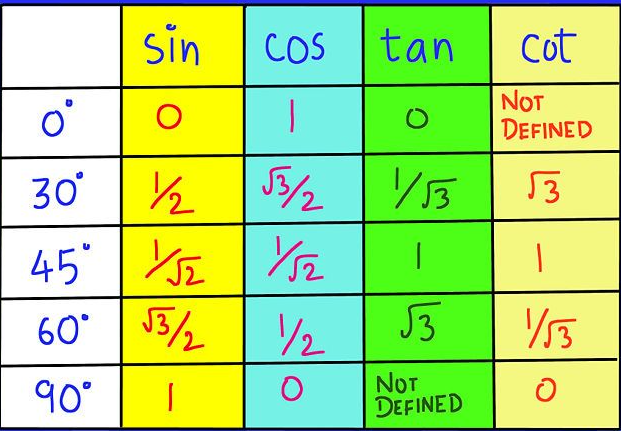 sin cos tan cot
0° 0 1 0 NOT DEFINED
30° 1/2 √3/2 1/√3 √3
45° 1/√2 1/√2 1 1
60° √3/2 1/2 √3 1/√3
90° 1 0 NOT DEFINED 0